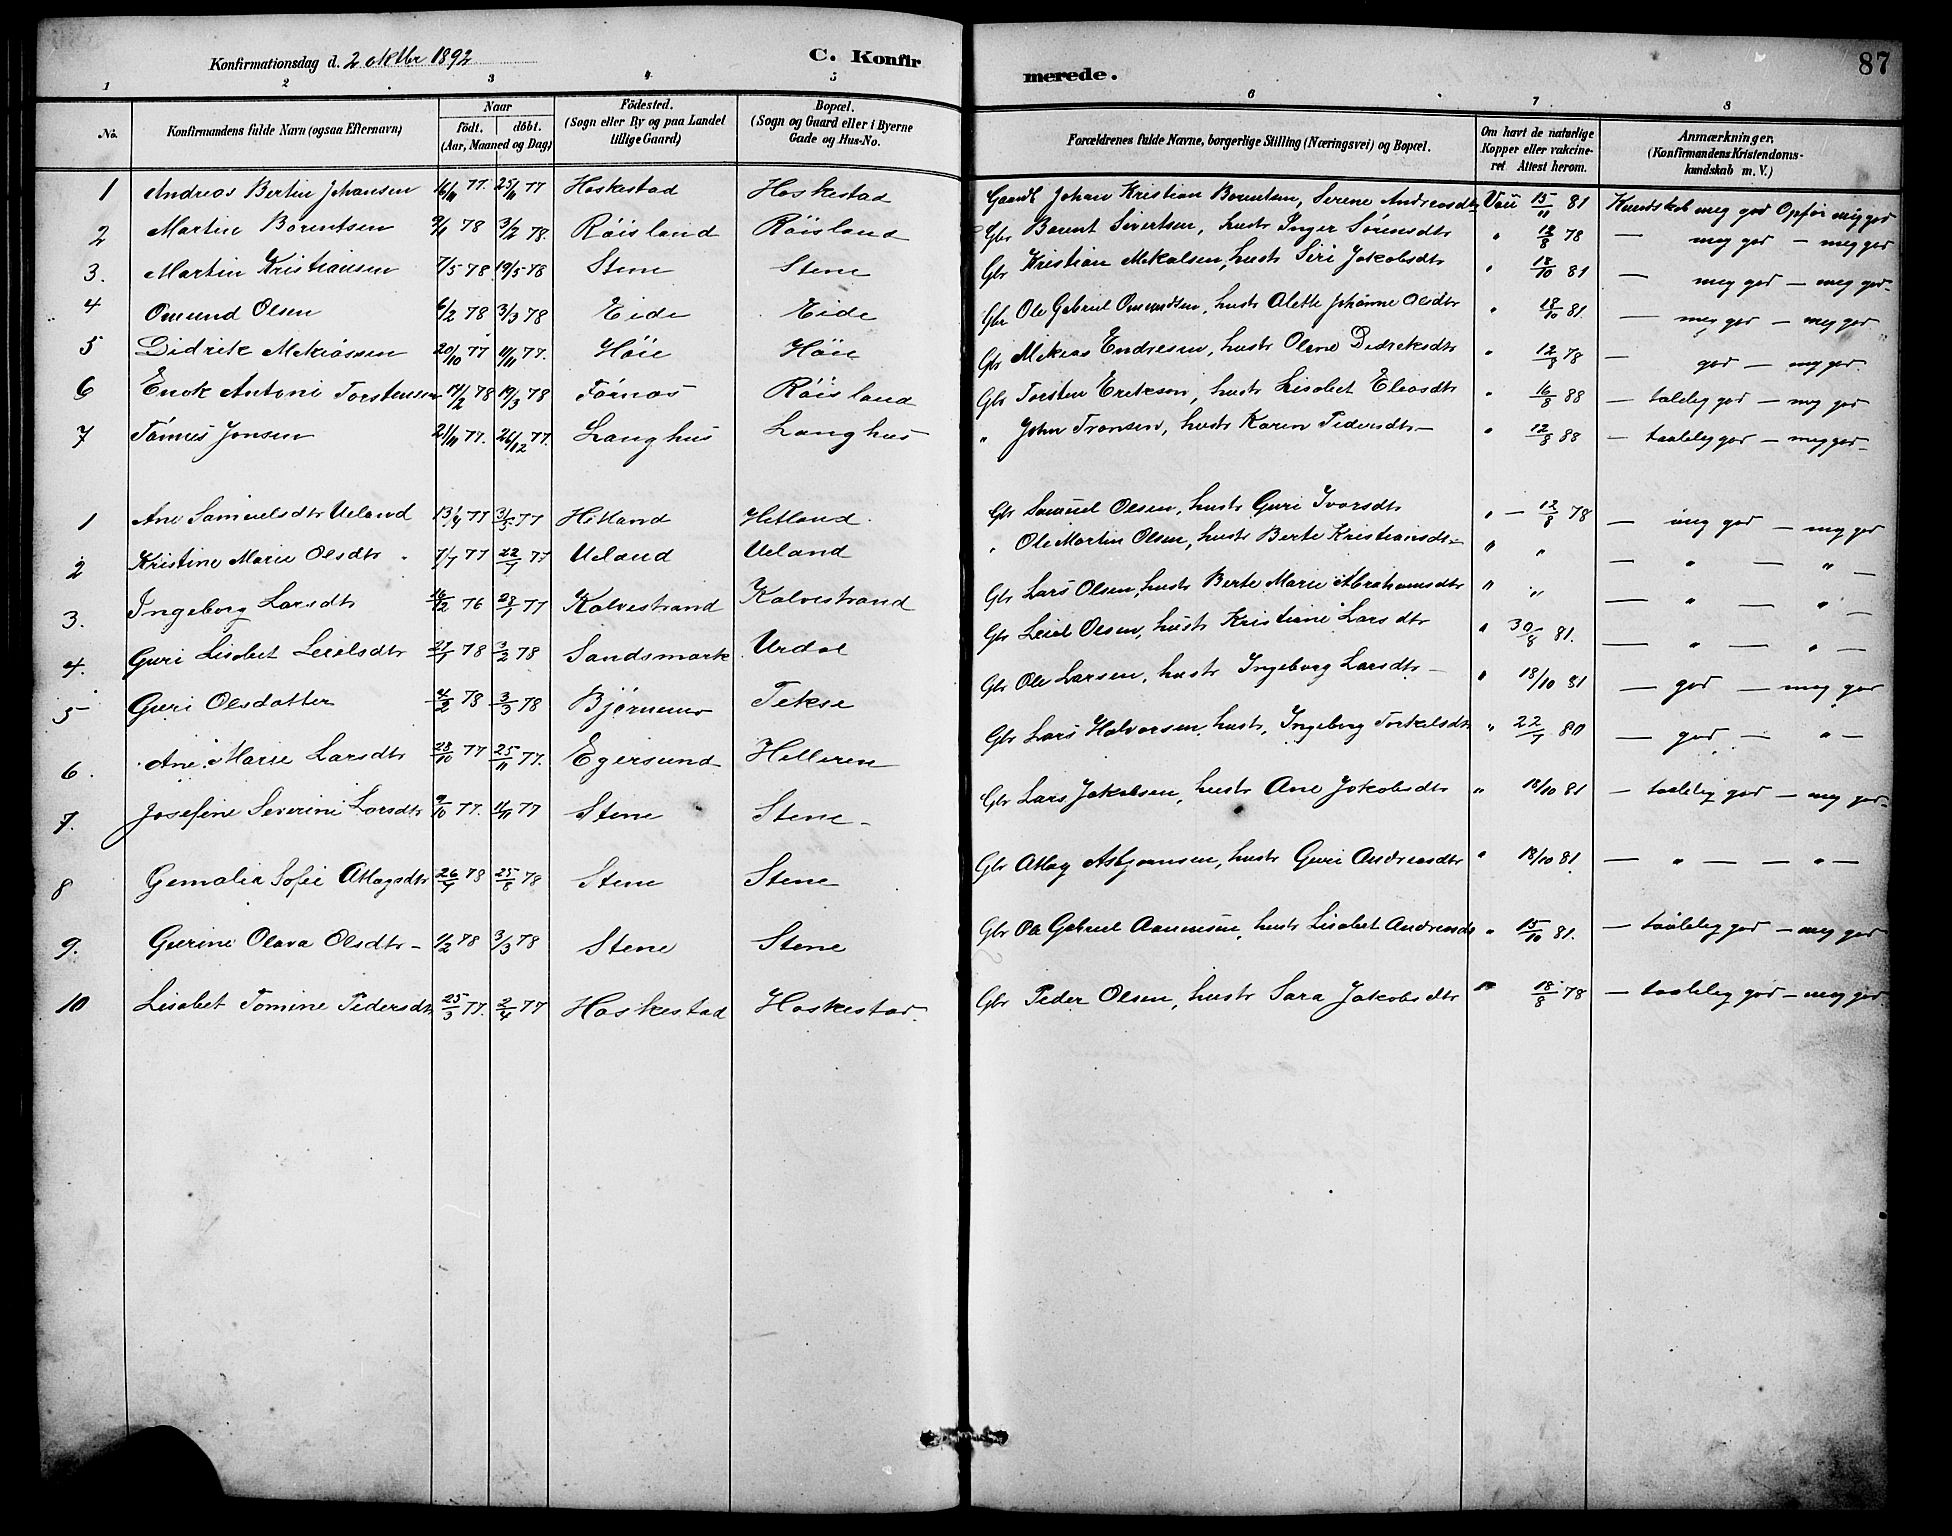 Konfirmationsdag d. 2 oktbr 1892
C. Konfir
merede.
87
1 2 3 4 5 6 7 8
No.
Konfirmandens fulde Navn (ogsaa Efternavn)
Naar
födt. döbt.
(Aar, Maaned og Dag)
Födested.
(Sogn eller By og paa Landet
tillige Gaard)
Bopæl.
(Sogn og Gaard eller i Byerne
Gade og Hus-No.
Forældrenes fulde Navne, borgerlige Stilling (Næringsvei) og Bopæl.
Om havt de naturlige
Kopper eller vakcine-
ret Attest herom.
Anmærkninger,
(Konfirmandens Kristendoms-
kundskab m. V.)
1 Andreas Bertin Johansen 16/11 77. 25/11 77 Haskestad Haskestad Gaardb Johan Kristian Berentsen, Serene Andreasdtr Vau 15/11 81 Kundskab meg god Opför meg god
2 Martin Berentsen 9/1 78 3/2 78. Röisland Röisland Gbr Berent Sivertsen, hustr Inger Sörensdtr " 12/8 78 — meg god — meg god
3. Martin Kristiansen 7/5 78 19/5 78 Stene Stene Gbr Kristian Mikalsen, hustr Siri Jakobsdtr " 18/10 81 — meg god — meg god
4 Omund Olsen 6/2 78 3/3 78 Eide Eide Gbr Ole Gabriel Omundsen, hustr Alette Johanne Olsdtr " 18/10 81 — meg god — meg god
5 Didrik Mekiassen 20/10 77 11/11 77. Höie Höie Gbr Mekias Endresen, hustr Olene Didriksdtr " 12/8 78 — god — meg god
6 Enok Antoni Torstensen 14/2 78 19/3 78 Törnes Röisland Gbr Torsten Erikson, hustr Lisabet Eliasdtr " 16/8 88 — taalelig god — meg god
7 Tönnes Jonsen 21/11 77. 26/12 77. Langhus Langhus " John Tronsen, hustr Karen Pedersdtr — " 12/8 88 — taalelig god — meg god
1 Ane Samuelsdtr Ueland 13/4 77 3/5 77 Hetland Hetland. Gbr Samuel Olsen, hustr Guri Ivarsdtr " — 12/8 78 — meg god — meg god
2 Kristine Marie Olsdtr " 7/7 77 22/7 77 Ueland Ueland " Ole Martin Olsen, hustr Berte Kristiansdtr " " — " — " —
3. Ingeborg Larsdtr 16/12 76 28/1 77 Kalvestrand Kalvestrand Gbr Lars Olsen, hustr Berte Marie Abrahamsdtr " " — " — " —
4. Guri Lisabet Leielsdtr 27/1 78 3/2 78 Sandsmark Urdal Gbr Leiel Olsen, hustr Kristiane Larsdtr " 30/8 81. — " — " —
5 Guri Olsdatter 4/2 78 3/3 78 Tekse Gbr Ole Larsen, hustr Ingeborg Larsdtr — " 18/10 81 — god — meg god
6. Ane Marie Larsdtr 28/10 77 25/11 77. Egersund Helleren Gbr Lars Halvorsen, hustr, Ingeborg Torkelsdtr " 22/7 80 — god — " —
7. Josefine Severine Larsdtr 9/10 77. 11/11 77 Stene Stene — Gbr Lars Jakobsen, hustr Ane Jakobsdtr " 18/10 81 — taalelig god — meg god
8 Gemalia Sofie Atlagsdtr 26/7 78 25/8 78 Stene Stene Gbr Atlag Asbjornsen, hustr Guri Andreasdtr " 18/10 81 — " — — " —
9. Gurine Olava Olsdtr — 1/2 78 3/3 78 Stene Stene Gbr Ole Gabriel Aanensen, hustr Lisabet Andreasdtr " 15/10 81. — taalelig god — meg god
10 Lisabet Tomine Pedersdtr 25/3 77. 2/4 77 Haskestad Haskestad. Gbr Peder Olsen, hustr Sara Jakobsdtr " 18/8 78 — taalelig god — meg god